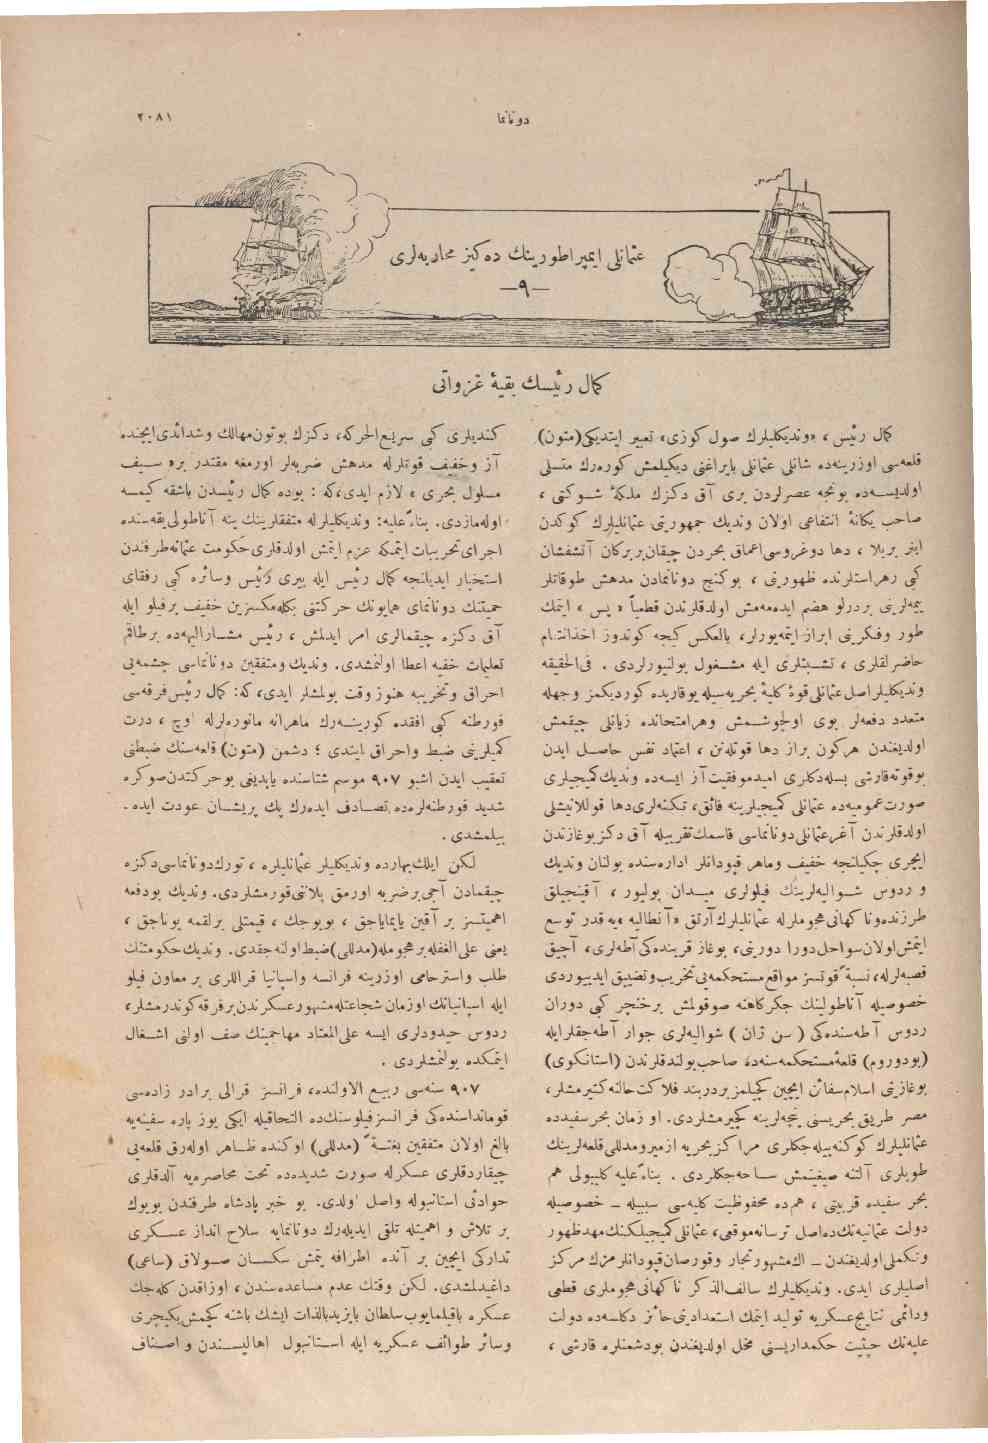 ٢٠٨١
دونانما
عثمانلى ايمپراطورينك ده‌كيز محاربه‌لرى
—٩—
كمال رئيسك بقيهٔ غزواتى
كمال رئيس ، «ونديكليلرك صول كوزى» تعبير ايتديكى (متون)
قلعه‌سى اوزرينه‌ده شانلى عثمانلى بايراغنى ديكيلمش كوره‌رك متسلى
اولديسه‌ده بونجه عصرلردن برى آق دكزك ملكهٔ شوكتى ،
صاحب يكانهٔ انتفاعى اولان ونديك جمهوريتى عثمانليلرك كوكدن
اينر بربلا ، دها دوغروسى اعماق بحردن چيقان بربركان آتشفشان
كبى زهراستلرنده ظهورينى ، بوكنج دونانمادن مدهش طوقاتلر
ييمه‌لرينى بردرلو هضم ايده‌مه‌مش اولدقلرندن قطعياً «پس» ايتمك
طور وفكرينى ابراز ايتمه‌يورلر، بالعكس كيجه كوندوز اخذانتقام
حاضرلقلرى ، تشبثلرى ايله مشغول بولنيورلردى . فى‌الحقيقه
ونديكليلر اصل عثمانلى قوۀ كليهٔ بحريه‌سيله يوقاريده كورديكمز وجهله
متعدد دفعه‌لر بوى اولچوشمش وهرامتحانده زيانلى چيقمش
اولديغندن هركون براز دها قوتله‌نن ، اعتماد نفس حاصل ايدن
بوقوته‌قارشى بسله‌دكلرى اميدموفقيت آز ايسه‌ده ونديك كميجيلرى
صورت عموميه‌ده عثمانلى كميجيلرينه فائق، تكنه‌لرى دها قوللانيشلى
اولدقلرندن آغر عثمانلى دونانماسى قاسمك تقربيله آق دكز بوغازندن
ايچرى چكيلنجه خفيف وماهر قپودانلر اداره‌سنده بولنان ونديك
و ردوس شواليه‌لرينك فيلولرى ميدان بوليور ، آقينجيلق
طرزنده‌ونا كهانى هجوملرله عثمانليلرك آرتق «آنطاليه» يه قدر توسع
ايتمش اولان سواحل دورا دورينى، بوغاز قربنده‌كى آطه‌لرى، آچيق
قصبه‌لرله، نسبةً قوتسز مواقع مستحكمه‌يى تخريب وتضييق ايدييوردى
خصوصيله آناطولينك جكركاهنه صوقولمش برخنچر كبى دوران
ردوس آطه‌سنده‌كى (سن ژان) شواليه‌لرى جوار آطه‌جقلرايله
(بودوروم) قلعهٔ مستحكمه‌سنه‌ده صاحب بولندقلرندن (استانكوى)
بوغازينى اسلام سفائن ايچين كچيلمز بردربند فلاكت حالنه كتيرمشلر،
مصر طريق بحريسنى پنجه‌لرينه كچيرمشلردى. او زمان بحرسفيدده
عثمانليلرك كوكنه‌بيله‌جكلرى مراكز بحريه ازمير ومدللى قلعه‌لرينك
طوپلرى آلتنه صيغينمش ساحه‌جكلردى . بناءً عليه كليبولى هم
بحر سفيده قربيتى ، هم‌ده محفوظيت كليه‌سى سببيله — خصوصيله
دولت عثمانيه‌نك ده‌اصل ترسانه‌موقعى، عثمانلى كميجيلكنك مهدظهور
وتكملى اولديغندن — اك مشهور تجار وقورصان قپودانلرمزك مركز
اصليلرى ايدى. ونديكليلرك سالف‌الذكر نا كهانى هجوملرى قطعى
ودائمى نتايج عسكريه توليد ايتمك استعدادينى حائز دكلسه‌ده دولت
عليه‌نك حيثيت حكمداريسنى مخل اولديغندن بودشمنلره قارشى ،
كنديلرى كبى سريع‌الحركه، دكزك بوتون مهالك وشدائدى ايچنده
آز وخفيف قوتلرله مدهش ضربه‌لر اورمغه مقتدر بره سيف
مسلول بحرى » لازم ايدى،كه : بوده كمال رئيسدن باشقه كيمسه
اوله‌مازدى. بناءً عليه: ونديكليلرله متفقلرينك ينه آناطولى يقه‌سنده
اجراى تخريبات ايتمكه عزم ايتمش اولدقلرى حكومت عثمانيه‌طرفندن
استخبار ايديلنجه كمال رئيس ايله پيرى رئيس وسائره كبى رفقاى
حميتنك دونانماى همايونك حركتنى بكله‌مكسزين خفيف برفيلو ايله
آق دكزه چيقمالرى امر ايدلمش ، رئيس مشاراليه‌ده برطاقم
تعليمات خفيه اعطا اولنمشدى. ونديك ومتفقين دونانماسى چشمه‌يى
احراق وتخريبه هنوز وقت بولمشلر ايدى،كه: كمال رئيس فرقه‌سى
فورطنه كبى افقده كورينه‌رك ماهرانه مانورلرله اوچ ، درت
كميلرينى ضبط واحراق ايتدى ؛ دشمن (متون) قلعه‌سنك ضبطنى
تعقيب ايدن اشبو ٩٠٧ موسم شتاسنده ياپديغى بوحركتدن صوكره
شديد فورطنه‌لره‌ده تصادف ايده‌رك پك پريشان عودت ايده‌
بيلمشدى .
لكن ايلك بهارده ونديكليلر عثمانليلره ، تورك دونانماسى دكزه
چيقمادن آجى برضربه اورمق پلاننى قورمشلردى. ونديك بودفعه
اهميتسز بر آقين ياپمايه‌جق ، بويوجك ، قيمتلى برلقمه يوتاجق ،
يعنى على‌الغفله برهجومله (مدللى) ضبط اولنه‌جقدى. ونديك حكومتنك
طلب واسترحامى اوزرينه فرانسه واسپانيا قراللرى بر معاون فيلو
ايله اسپانيانك اوزمان شجاعتله مشهور عسكرندن برفرقه كوندرمشلر،
ردوس حيدودلرى ايسه على‌المعتاد مهاجمينك صف اولنى اشغال
ايتمكده بولنمشلردى .
٩٠٧ سنه‌سى ربيع الاولنده، فرانسز قرالى برادر زاده‌سى
قومانداسنده‌كى فرانسز فيلوسنك‌ده التحاقيله ايكى يوز پاره سفينه‌يه
بالغ اولان متفقين بغتةً (مدللى) اوكنده ظاهر اوله‌رق قلعه‌يى
چيقاردقلرى عسكرله صورت شديده‌ده تحت محاصره‌يه آلدقلرى
حوادثى استانبوله واصل اولدى. بو خبر پادشاه طرفندن بويوك
بر تلاش و اهميتله تلقى ايديله‌رك دونانمايه سلاح انداز عسكرى
تداركى ايچين بر آنده اطرافه يتمش سكسان صولاق (ساعى)
داغيدلمشدى. لكن وقتك عدم مساعده‌سندن ، اوزاقدن كله‌جك
عسكره باقيلمايوب سلطان بايزيد بالذات ايشك باشنه كچمش يكيچرى
وسائر طوائف عسكريه ايله استانبول اهاليسندن و اصناف